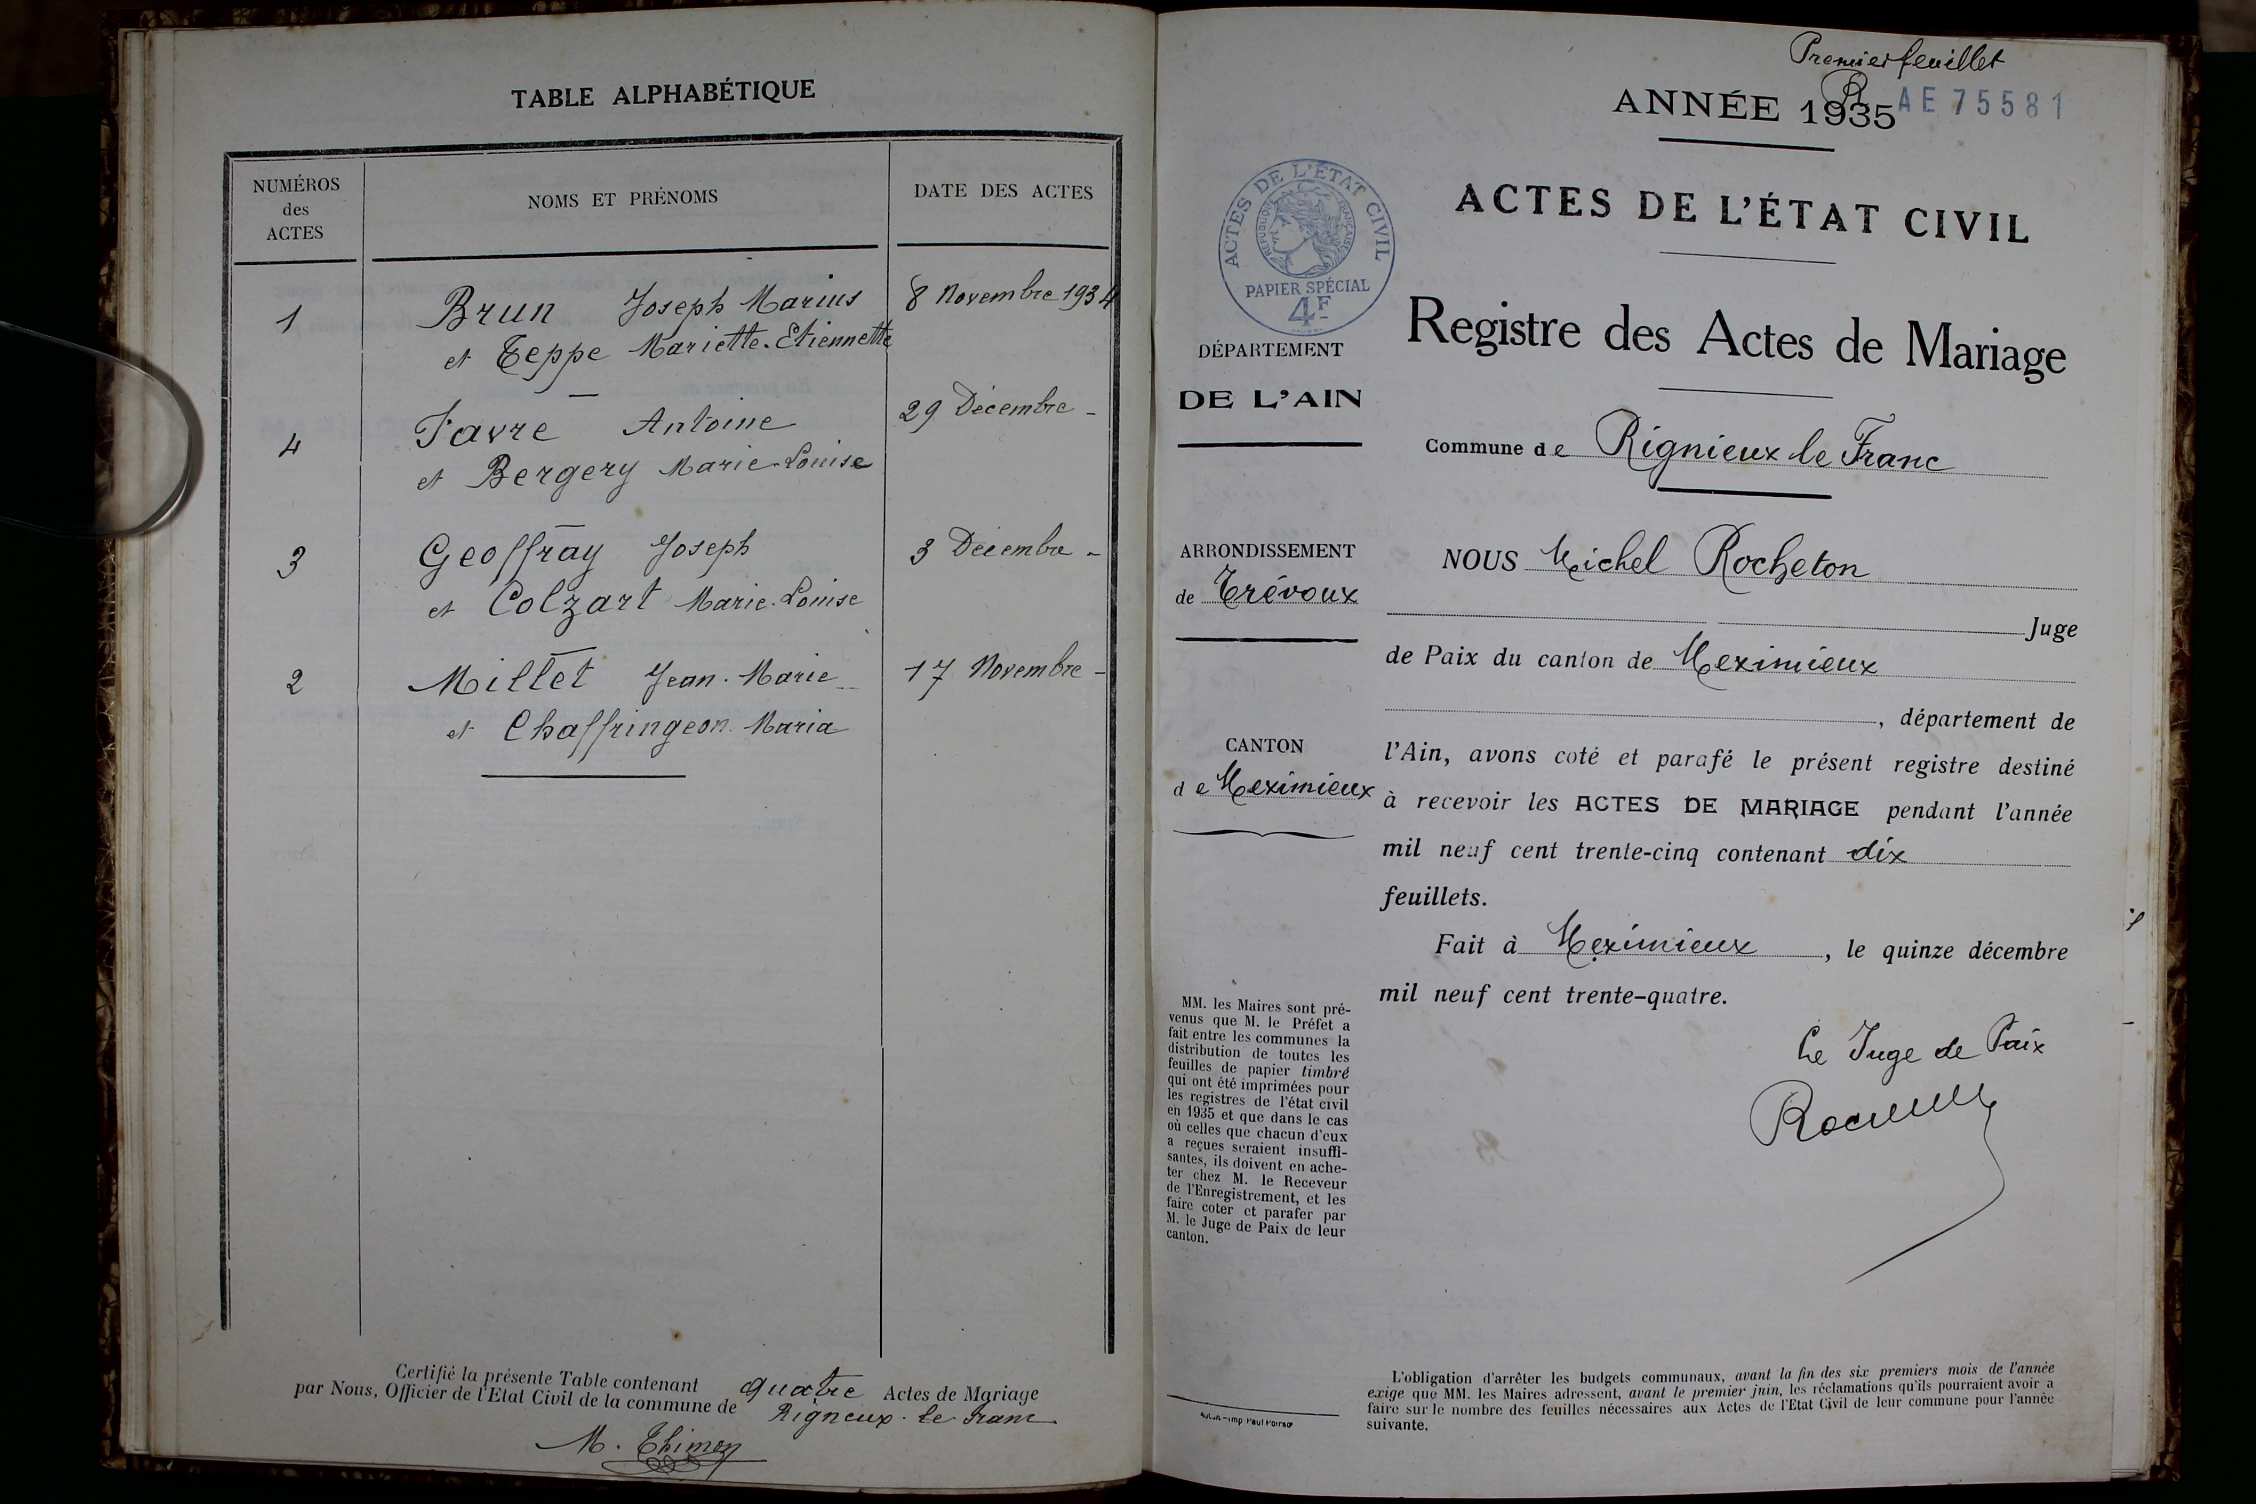 TABLE ALPHABÉTIQUE
NUMÉROS
des
ACTES
NOMS ET PRÉNOMS
DATE DES ACTES
1 Brun Joseph Marius 8 Novembre 1934
et Teppe Mariette-Etiennette
4 Favre Antoine 29 Décembre -
et Bergery Marie-Louise
3 Geoffray Joseph 3 Décembre -
et Colzart Marie-Louise
2 Millet Jean-Marie 17 Novembre -
et Chaffringeon Maria
Certifié la présente Table contenant quatre Actes de Mariage
par Nous, Officier de l'Etat Civil de la commune de Rigneux-le-Franc
M. Thimon
Premier feuillet
ANNÉE 1935
AE 75581
ACTES DE L'ÉTAT CIVIL
RÉPUBLIQUE FRANÇAISE
PAPIER SPÉCIAL
4F
ACTES DE L'ÉTAT CIVIL
Registre des Actes de Mariage
DÉPARTEMENT
DE L'AIN
Commune de Rignieux le Franc
ARRONDISSEMENT
de Trévoux
CANTON
de Meximieux
NOUS Michel Rocheton
Juge
de Paix du canton de Meximieux
, département de
l'Ain, avons coté et parafé le présent registre destiné
à recevoir les ACTES DE MARIAGE pendant l'année
mil neuf cent trente-cinq contenant dix
feuillets.
Fait à Meximieux, le quinze décembre
mil neuf cent trente-quatre.
Le Juge de Paix
MM. les Maires sont pré-
venus que M. le Préfet a
fait entre les communes la
distribution de toutes les
feuilles de papier timbré
qui ont été imprimées pour
les registres de l'état civil
en 1935 et que dans le cas
où celles que chacun d'eux
a reçues seraient insuffi-
santes, ils doivent en ache-
ter chez M. le Receveur
de l'Enregistrement, et les
faire coter et parafer par
M. le Juge de Paix de leur
canton.
L'obligation d'arrêter les budgets communaux, avant la fin des six premiers mois de l'année
exige que MM. les Maires adressent, avant le premier juin, les réclamations qu'ils pourraient avoir a
faire sur le nombre des feuilles nécessaires aux Actes de l'Etat Civil de leur commune pour l'année
suivante.